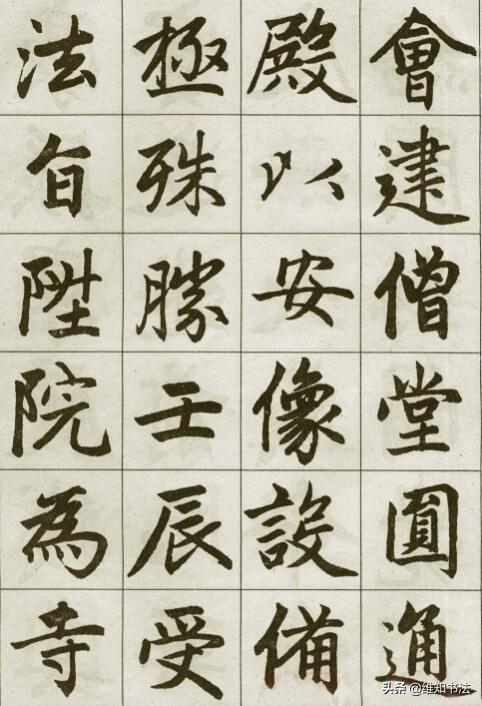 會建僧堂圓通
殿以安像設備
極殊勝壬辰受
法旨陞院為寺
头条 @维知书法